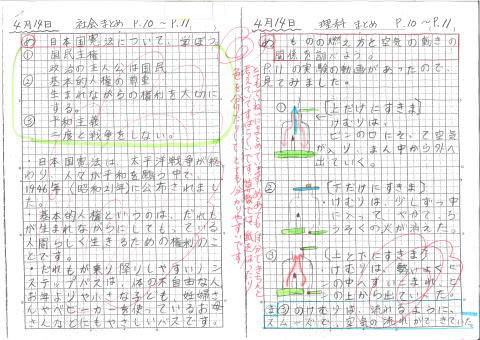 4月14日 社会まとめ P.10〜P.11
め 日本国憲法について、学ぼう。
① 国民主権
政治の主人公は国民
② 基本的人権の尊重
生まれながらの権利を大切に
する。
③ 平和主義
二度と戦争をしない。
・日本国憲法は、太平洋戦争が終
わり、人々が平和を願う中で、
1946年(昭和21年)に公布されまし
た。
・基本的人権というのは、だれも
が生まれながらにしてもっている、
人間らしく生きるための権利のこ
とです。
・だれもが乗り降りしやすいノン
ステップバスは、体の不自由な人
お年よりや小さな子ども、妊婦さ
んやベビーカーを使っているお母
さんなどにもやさしいバスです。
4月14日 理科まとめ P.10〜P.11
め ものの燃え方と空気の動きの
関係を調べよう。
P.11の実験の動画があったので、
見てみました。
① [上だけにすきま]
けむりは、
ビンの口にそって空気
が入り、まん中から外へ
出ていく。
② [下だけにすきま]
・けむりは、少しずつ中
に入って、やがて、ろ
うそくの火が消えた。
③ (上と下にすきま)
けむりは、勢いよくビ
ンの中へすいこまれ、ビ
ンの上から出ていった。
ま ③のけむりは、流れるように、
スムーズで、空気の流れができていた。